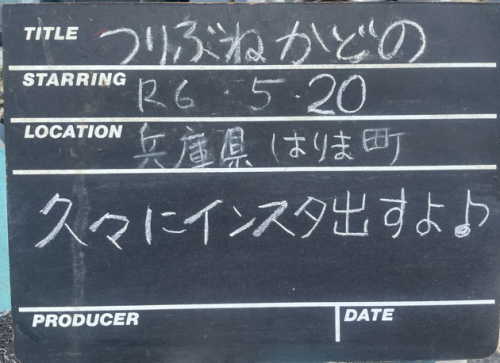 TITLE つりぶねかどの
STARRING R6・5・20
LOCATION 兵庫県 はりま町
久々にインスタ出すよ♪
PRODUCER DATE